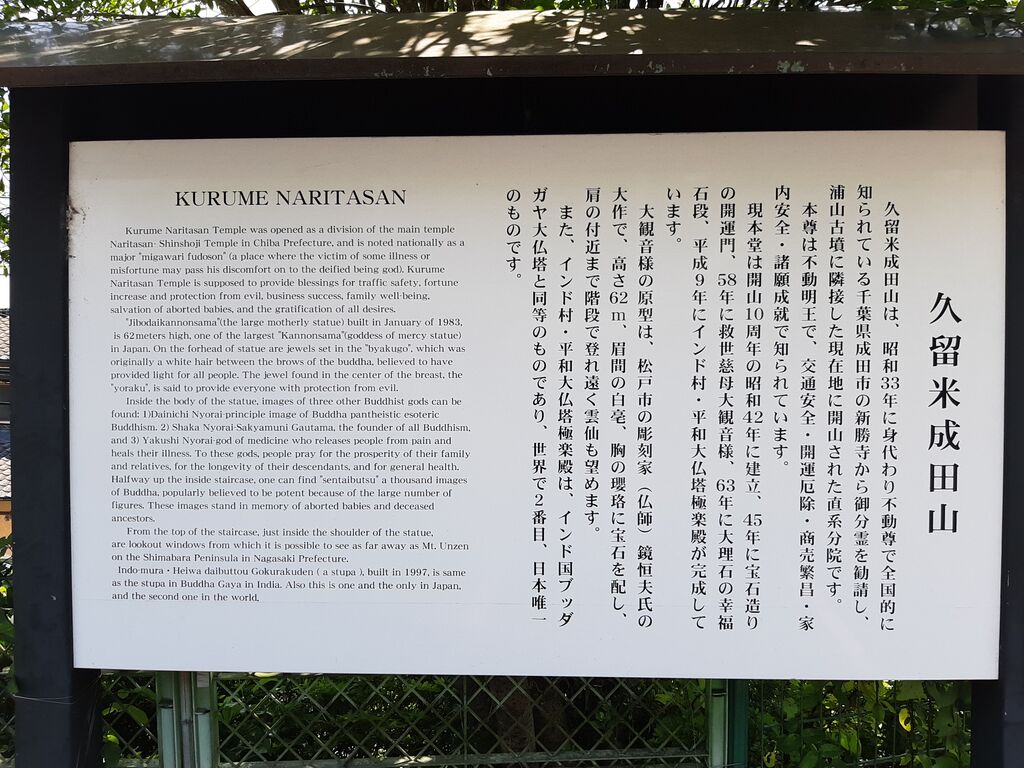 KURUME NARITASAN
Kurume Naritasan Temple was opened as a division of the main temple
Naritasan· Shinshoji Temple in Chiba Prefecture, and is noted nationally as a
major "migawari fudoson" (a place where the victim of some illness or
misfortune may pass his discomfort on to the deified being god). Kurume
Naritasan Temple is supposed to provide blessings for traffic safety, fortune
increase and protection from evil, business success, family well-being,
salvation of aborted babies, and the gratification of all desires.
"Jibodaikannonsama"(the large motherly statue) built in January of 1983,
is 62meters high, one of the largest "Kannonsama"(goddess of mercy statue)
in Japan. On the forhead of statue are jewels set in the "byakugo", which was
originally a white hair between the brows of the buddha, believed to have
provided light for all people. The jewel found in the center of the breast, the
"yoraku", is said to provide everyone with protection from evil.
Inside the body of the statue, images of three other Buddhist gods can be
found: 1)Dainichi Nyorai-principle image of Buddha pantheistic esoteric
Buddhism. 2) Shaka Nyorai-Sakyamuni Gautama, the founder of all Buddhism,
and 3) Yakushi Nyorai-god of medicine who releases people from pain and
heals their illness. To these gods, people pray for the prosperity of their family
and relatives, for the longevity of their descendants, and for general health.
Halfway up the inside staircase, one can find "sentaibutsu" a thousand images
of Buddha, popularly believed to be potent because of the large number of
figures. These images stand in memory of aborted babies and deceased
ancestors.
From the top of the staircase, just inside the shoulder of the statue,
are lookout windows from which it is possible to see as far away as Mt. Unzen
on the Shimabara Peninsula in Nagasaki Prefecture.
Indo-mura・Heiwa daibuttou Gokurakuden ( a stupa ), built in 1997, is same
as the stupa in Buddha Gaya in India. Also this is one and the only in Japan,
and the second one in the world.
久留米成田山
久留米成田山は、昭和33年に身代わり不動尊で全国的に
知られている千葉県成田市の新勝寺から御分霊を勧請し、
浦山古墳に隣接した現在地に開山された直系分院です。
本尊は不動明王で、交通安全・開運厄除・商売繁昌・家
内安全・諸願成就で知られています。
現本堂は開山10周年の昭和42年に建立、45年に宝石造り
の開運門、58年に救世慈母大観音様、63年に大理石の幸福
石段、平成9年にインド村・平和大仏塔極楽殿が完成して
います。
大観音様の原型は、松戸市の彫刻家（仏師）鏡恒夫氏の
大作で、高さ62m、眉間の白毫、胸の瓔珞に宝石を配し、
肩の付近まで階段で登れ遠く雲仙も望めます。
また、インド村・平和大仏塔極楽殿は、インド国ブッダ
ガヤ大仏塔と同等のものであり、世界で2番目、日本唯一
のものです。